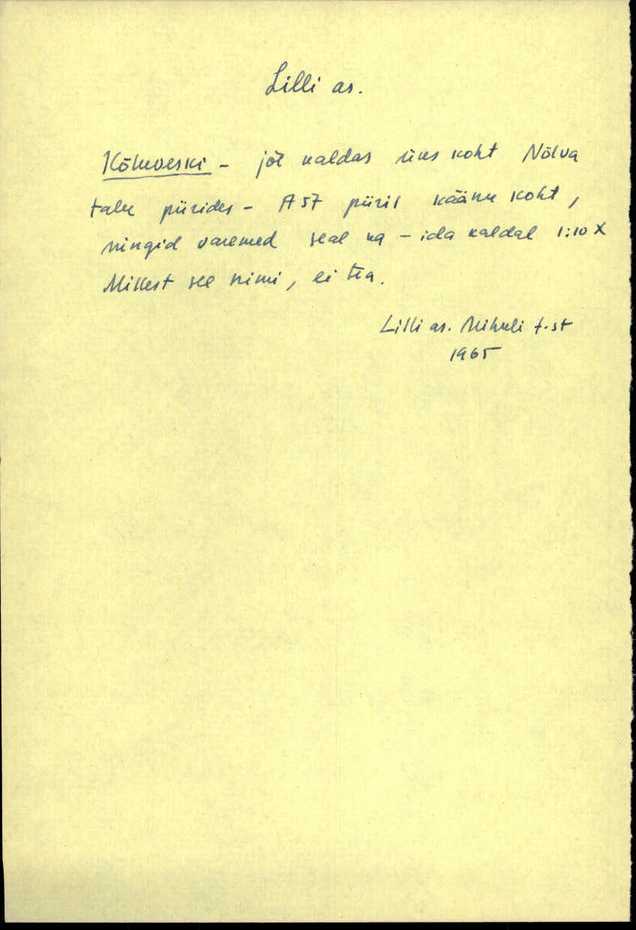 Lilli as.
Kõluveski - jõe kaldas üks koht Nõlva
talu piirides - A 57 piiril käänu koht,
mingid varemed seal ka - ida kaldal 1:10 X
Millest see nimi, ei tea.
Lilli as. Mihkli t-st
1965